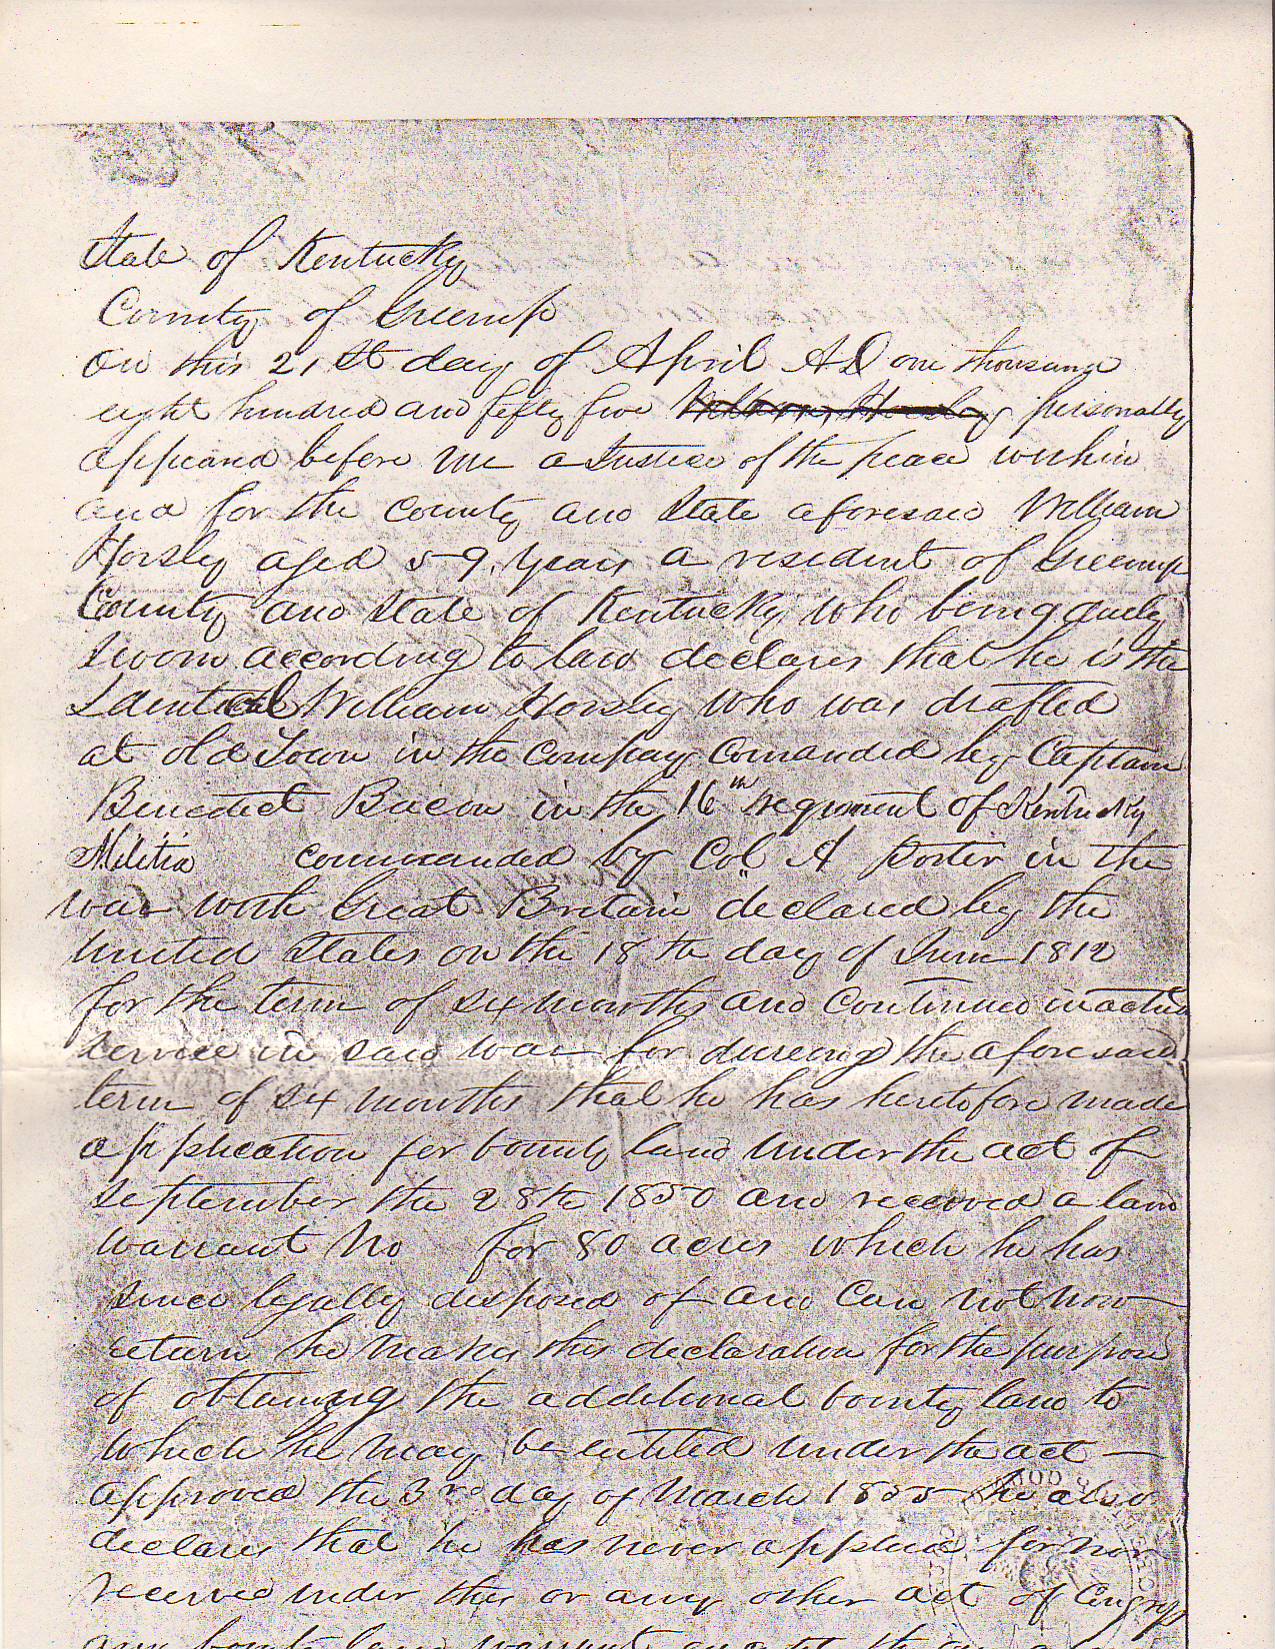 State of Kentucky
County of Greenup
On this 21st day of April AD one thousand
eight hundred and fifty five William Horsley personally
appeared before me a Justice of the peace within
and for the County and State aforesaid William
Horsley aged 59, years a resident of Greenup
County and State of Kentucky who being duely
Sworn according to law declares that he is the
Identical William Horsley who was drafted
at old Town in the company comanded by Captain
Benedict Bacon in the 16th regiment of Kentucky
Militia commanded by Col A Porter in the
war with Great Britain declared by the
United States on the 18th day of June 1812
for the term of months and continued in active
service in said war for dureing the aforesaid
term of months that he has heretofore made
application for bounty land under the act of
September the 28th 1850 and received a land
warrant No for 80 acres which he has
since legally disposed of and can not now
return he makes this declaration for the purpose
of obtaining the additional bounty land to
which he may be entitled under the act
approved the 3rd day of March 1855 he also
declares that he has never applied for nor
received under this or any other act of Congress
any bounty land warrant